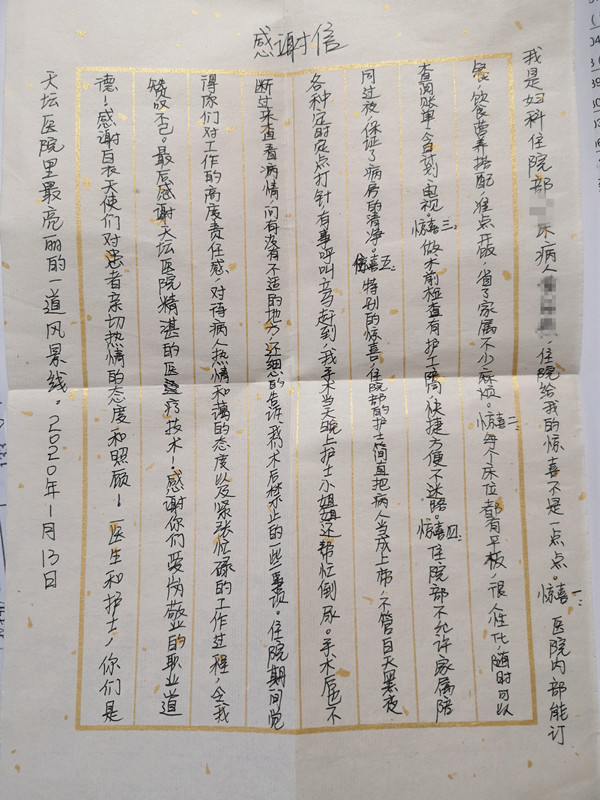 感谢信
我是妇科住院部床病人,住院给我的惊喜不是一点点。惊喜一:医院内部能订
餐,饮食营养搭配,准点开饭,省了家属不少麻烦。惊喜二:每个床位都有平板,很人性化,随时可以
查阅账单、会计划、电视。惊喜三:做术前检查有护工陪同,快捷方便不迷路。惊喜四:住院部不允许家属陪
同过夜,保证了病房的清净。惊喜五:特别的惊喜,住院部的护士简直把病人当成上帝,不管白天黑夜
各种定时定点打针,有事呼叫立马赶到,我手术当天晚上护士小姐姐还帮忙倒尿。手术后也不
断过来查看病情问有没有不适的地方,还细心的告诉我术后禁止的一些事项。住院期间觉
得你们对工作的高度责任感。对待病人热情和蔼的态度以及紧张忙碌的工作过程,令我
赞叹不已。最后感谢天坛医院精湛的医疗技术!感谢你们爱岗敬业的职业道
德!感谢白衣天使们对患者亲切热情的态度和照顾!医生和护士,你们是
天坛医院里最亮丽的一道风景线。2020年1月13日